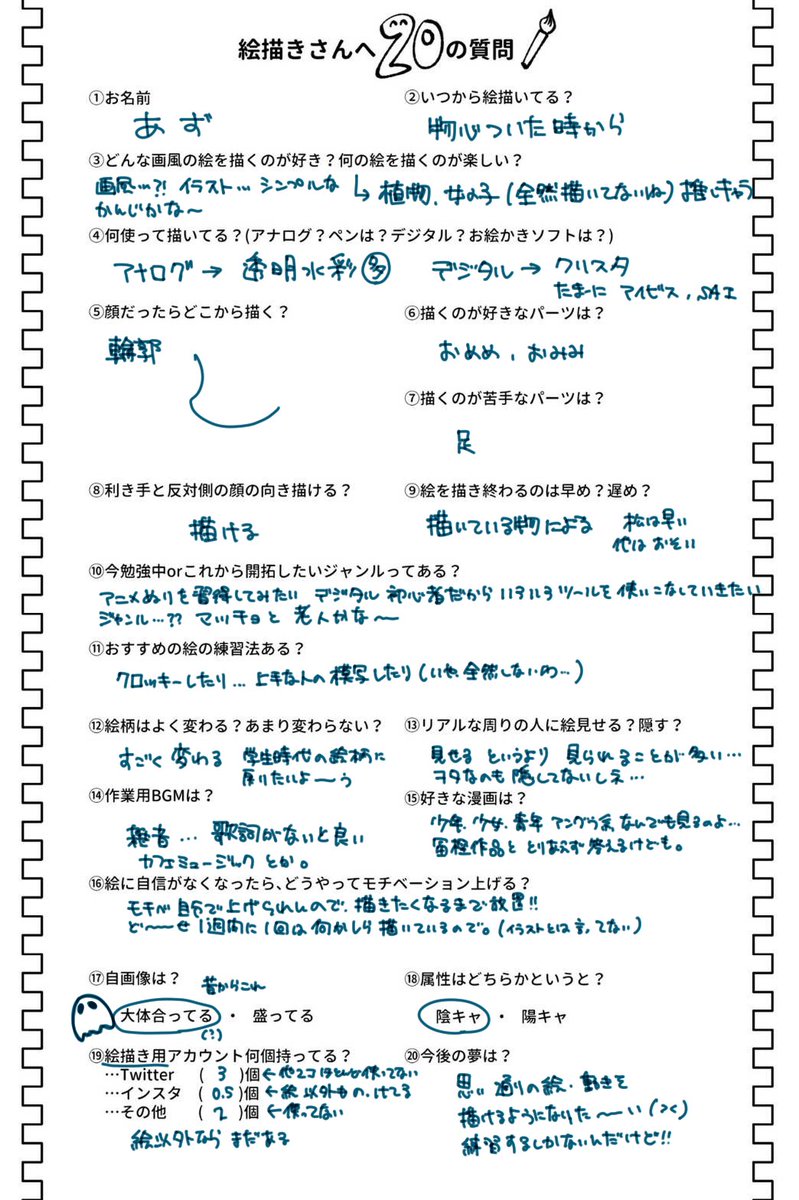 絵描きさんへ20の質問
①お名前
あず
②いつから絵描いてる？
物心ついた時から
③どんな画風の絵を描くのが好き？何の絵を描くのが楽しい？
画風…?! イラスト… シンプルな
かんじかな〜
↳ 植物、女の子(全然描いてないね) 推しキャラ
④何使って描いてる？(アナログ？ペンは？デジタル？お絵かきソフトは？)
アナログ→ 透明水彩 多
デジタル→ クリスタ
たまに アイビス、SAI
⑤顔だったらどこから描く？
輪郭
⑥描くのが好きなパーツは？
おめめ、おみみ
⑦描くのが苦手なパーツは？
足
⑧利き手と反対側の顔の向き描ける？
描ける
⑨絵を描き終わるのは早め？遅め？
描いている物による
松は早い
他はおそい
⑩今勉強中orこれから開拓したいジャンルってある？
アニメぬりを習得してみたい デジタル 初心者だから いろいろツールを使いこなしていきたい
ジャンル…?? マッチョと 老人かな〜
⑪おすすめの絵の練習法ある？
クロッキーしたり… 上手な人の模写したり(いや、全然しないわ…)
⑫絵柄はよく変わる？あまり変わらない？
すごく変わる 学生時代の絵柄に
戻りたいよ〜う
⑬リアルな周りの人に絵見せる？隠す？
見せる というより 見られることが多い…
ヲタなのも 隠してないしえ…
⑭作業用BGMは？
雑音… 歌詞がないと良い
カフェミュージック とか。
⑮好きな漫画は？
少年、少女、青年 アングラ系、なんでも見るのよ…
冨樫作品と とりあえず 答えるけども。
⑯絵に自信がなくなったら、どうやってモチベーション上げる？
モチベ 自分で上げられんので、描きたくなるまで放置!!
ど〜せ 1週内に1回は何かしら 描いているので。(イラストとは言ってない)
⑰自画像は？
昔からこれ
大体合ってる ・ 盛ってる
(?)
⑱属性はどちらかというと？
陰キャ ・ 陽キャ
⑲絵描き用アカウント何個持ってる？
…Twitter ( 3 )個 ←他2コ ほとんど使ってない
…インスタ ( 0.5 )個 ←絵以外ものっけてる
…その他 ( 2 )個 ←使ってない
絵以外なら まだある
⑳今後の夢は？
思い通りの絵・動きを
描けるようになりた〜い(><)
練習するしかないんだけど!!